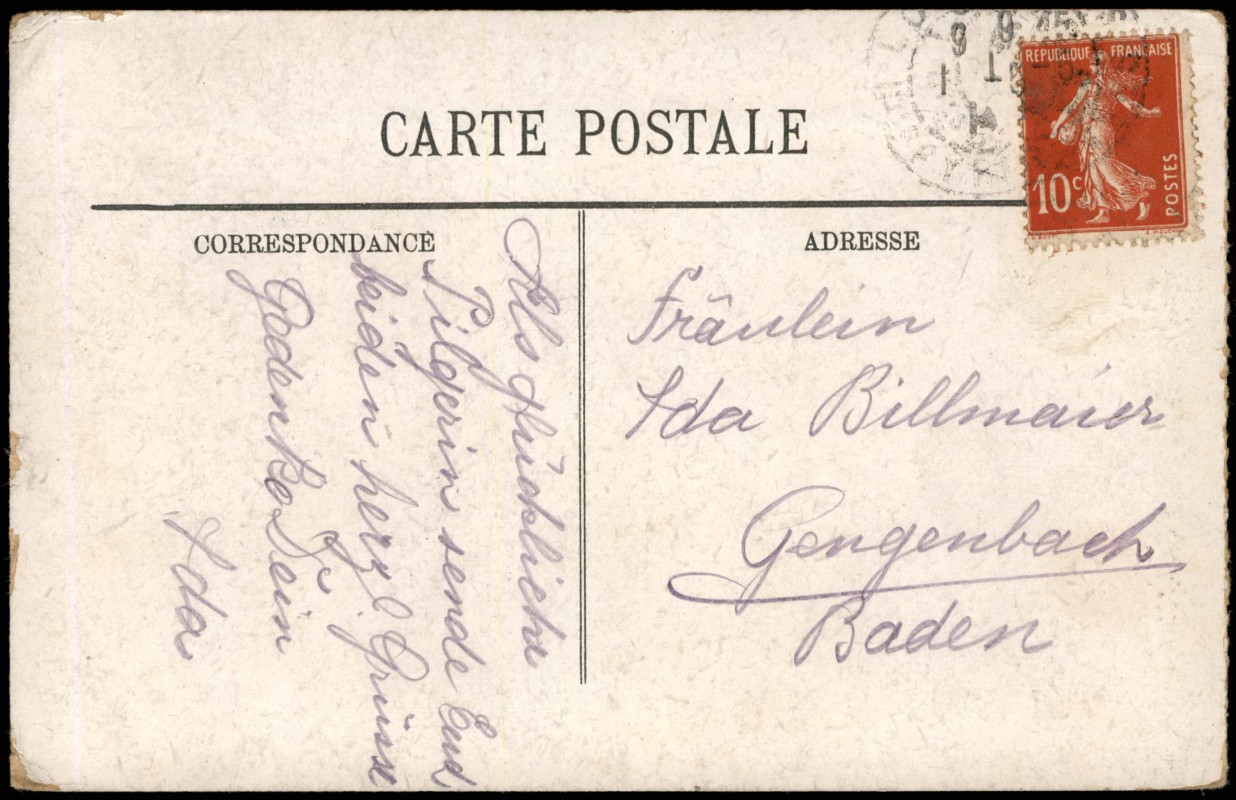 CARTE POSTALE
RÉPUBLIQUE FRANÇAISE
10c
POSTES
CORRESPONDANCE
Als glückliche
Pilgerin sende Euch
beiden herzl Grüsse
Gedenke Dein
Ida
ADRESSE
Fräulein
Ida Billmaier
Gengenbach
Baden